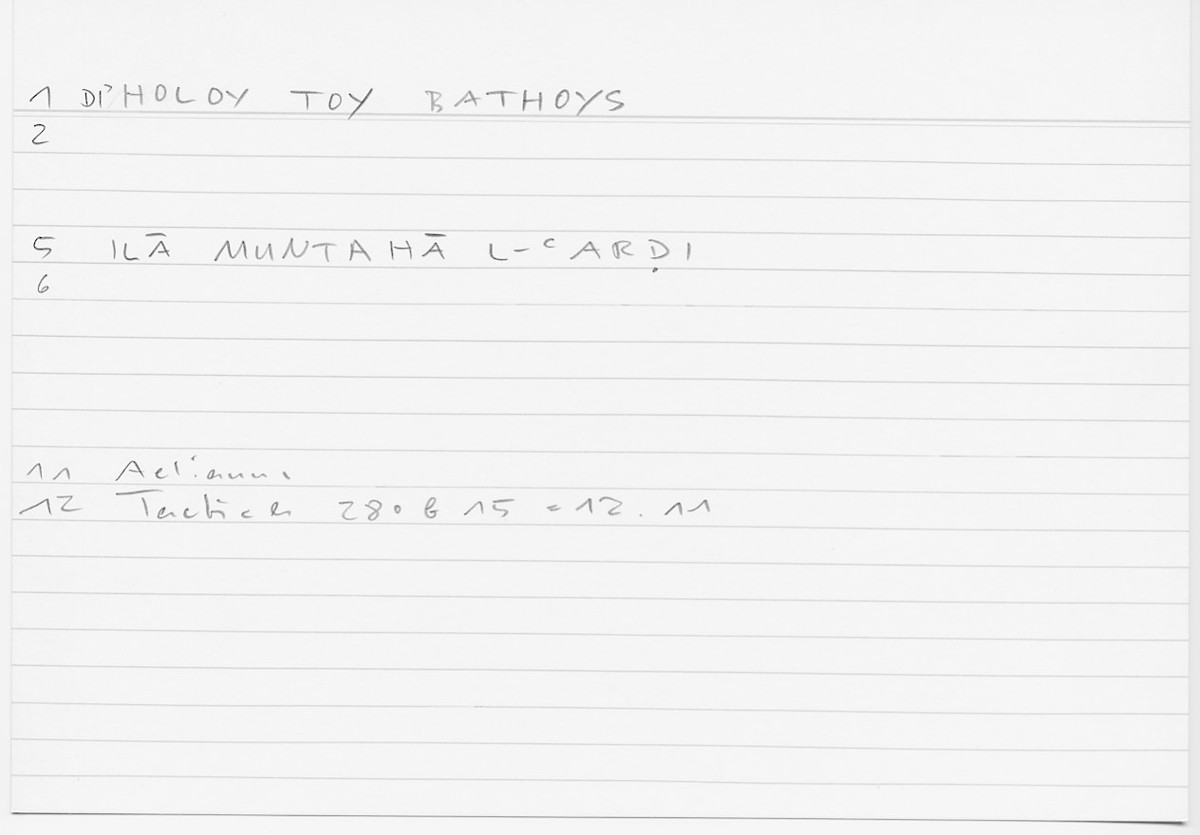 1 DI'HOLOY TOY BATHOYS
2
5 ILĀ MUNTAHĀ L-ʿARḌI
6
11 Aelianus
12 Tactica 280 b 15 = 12.11